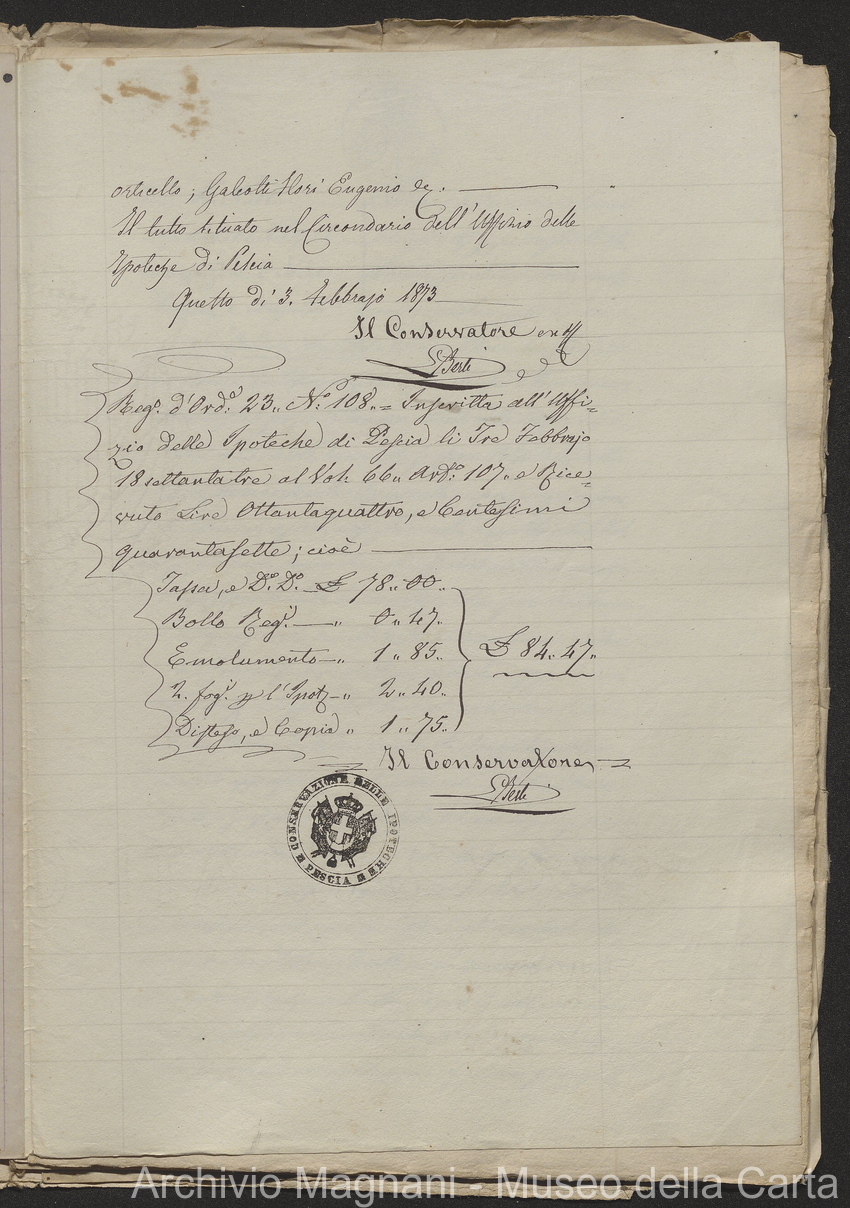 orticello; Galeotti Flori Eugenio &c. —
Il tutto situato nel Circondario dell'Uffizio delle
Ipoteche di Pescia —
Questo dì 3. Febbrajo 1873 —
Il Conservatore
Berti
Reg.º d'Ord.º 23,, N.º 108,, = Inscritta all'Uffi=
zio delle Ipoteche di Pescia li Tre Febbrajo
18settantatre al Vol: 66,, Ord.º 107,, e Rice=
vuto Lire Ottantaquattro, e Centesimi
quarantasette; cioè —
Tassa, e D.º D.º — £ 78,, 00,,
Bollo Reg.º — ,, 0,, 47,,
Emolumento — ,, 1,, 85,, £ 84,, 47,,
2. fog.i p l'Ipot — ,, 2,, 40,,
Disteso, e Copia ,, 1,, 75,,
Il Conservatore
Berti
CONSERVAZIONE DELLE IPOTECHE
PESCIA
Archivio Magnani - Museo della Carta